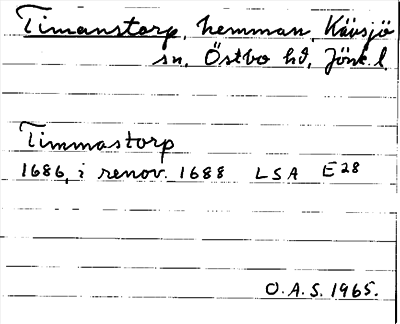 Timanstorp, hemman, Kävsjö
sn, Östbo hd, Jönk. l.
Timmastorp
1686, i renov. 1688 LSA E28
O.A.S. 1965.